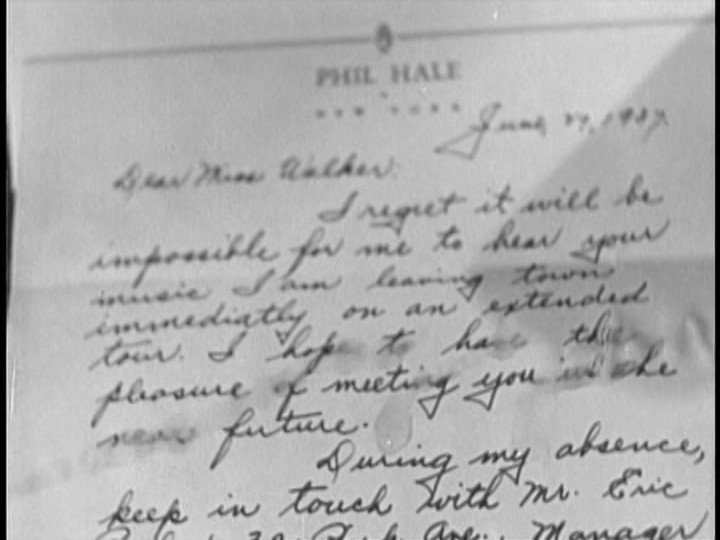 PHIL HALE
NEW YORK
June 27, 1937
Dear Miss Walker:
I regret it will be
impossible for me to hear your
music I am leaving town
immediatly on an extended
tour. I hope to have the
pleasure of meeting you in the
near future.
During my absence,
keep in touch with Mr. Eric
Park Ave., Manager